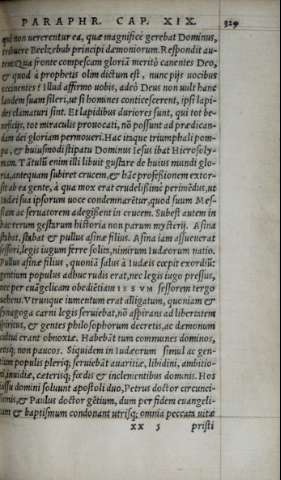 PARAPHR. CAP. XIX. 329
quòd non uererentur ea, quæ magnificè gerebat Dominus,
tribuere Beelzebub principi dæmoniorum. Respondit au-
tem: Qua fronte compescam gloriã meritò canentes Deo,
& quod à prophetis olim dictum est, nunc pijs uocibus
occinentes? Illud affirmo uobis, adeò Deus non uult hanc
laudem suam sileri, ut si homines conticescerent, ipsi lapi-
des clamaturi sint. Et lapidibus duriores sunt, qui tot be-
neficijs, tot miraculis prouocati, nõ possunt ad prædican-
dam dei gloriam permoueri. Hac itaque triumphali pom-
pa, & huiusmodi stipatu Dominus Iesus ibat Hierosoly-
mam. Tãtulũ enim illi libuit gustare de huius mundi glo-
ria, antequam subiret crucem, & hãc professionem extor-
sit ab ea gente, à qua mox erat crudelißimè perimẽdus, ut
Iudæi sua ipsorum uoce condemnarẽtur, quod suum Mes-
siam ac seruatorem adegissent in crucem. Subest autem in
hac rerum gestarum historia non parum mysterij. Asina
stabat, stabat & pullus asinæ filius. Asina iam assueuerat
sessori, legis iugum ferre solita, nimirum Iudæorum natio.
Pullus asinæ filius, quoniã salus à Iudæis cœpit exordiũ:
gentium populus adhuc rudis erat, nec legis iugo pressus,
nec per euãgelicam obediẽtiam IESVM sessorem tergo
uehens. Vtrunque iumentum erat alligatum, quoniam &
synagoga carni legis seruiebat, nõ aspirans ad libertatem
spiritus, & gentes philosophorum decretis, ac dæmonum
cultui erant obnoxiæ. Habebãt tum communes dominos,
eosq́; non paucos. Siquidem in Iudæorum simul ac gen-
tium populis pleriq; seruiebãt auaritiæ, libidini, ambitio-
ni, inuidiæ, cæterisq́; fœdis & inclementibus dominis. Hos
iussu domini soluunt apostoli duo, Petrus doctor circunci-
sionis, & Paulus doctor gẽtium, dum per fidem euangeli-
cam & baptismum condonant utrisq́; omnia peccata uitæ
xx 5 pristi